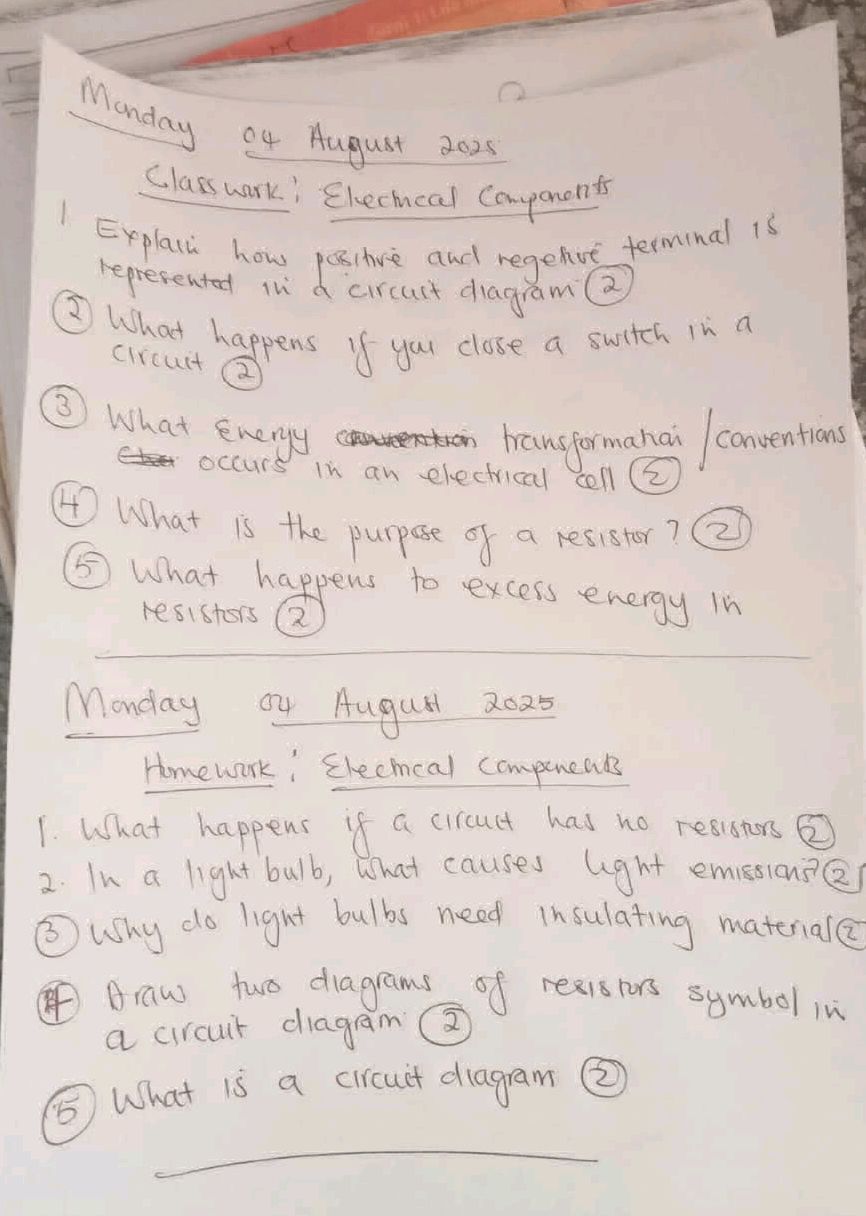 Monday 04 August 2025
Classwork: Electrical Components
1 Explain how positive and negetive terminal is
represented in a circuit diagram (2)
(2) What happens if you close a switch in a
circuit (2)
(3) What Energy transformation / conventions
occurs in an electrical cell (2)
(4) What is the purpose of a resistor? (2)
(5) What happens to excess energy in
resistors (2)
Monday 04 August 2025
Homework: Electrical Components
1. What happens if a circuit has no resistors (2)
2. In a light bulb, what causes light emissions? (2)
(3) Why do light bulbs need insulating material (2)
(4) Draw two diagrams of resistors symbol in
a circuit diagram (2)
(5) What is a circuit diagram (2)